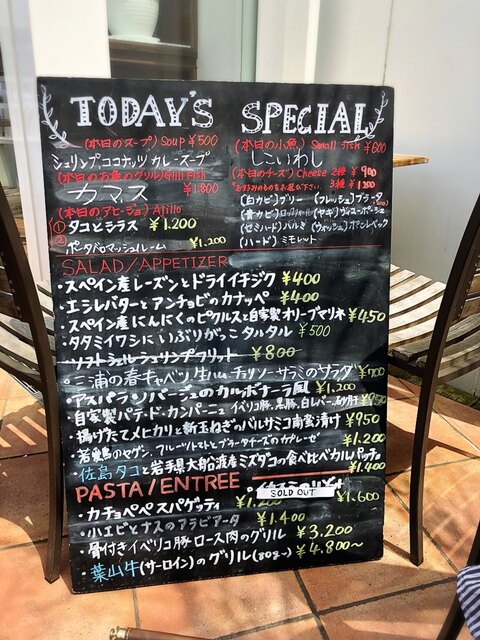 TODAY'S SPECIAL
(本日のスープ) Soup ¥500
シュリンプココナッツカレースープ
(本日のお魚のグリル) Grill Fish
カマス ¥1,800
(本日のアヒージョ) Ajillo
① タコとシラス ¥1.200
② ポタパロマッシュルーム ¥1.200
(本日の小魚) Small fish ¥600
しこいわし
(本日のチーズ) Cheese 2種 ¥900
*お好みのものをお選び下さい 3種 ¥1200
(白カビ) ブリー (フレッシュ) ブラータ
(青カビ) (ヤギ)
(セミハード) バルミ (ウォッシュ)
(ハード) ミモレット
SALAD/APPETIZER
・スペイン産レーズンとドライイチジク ¥400
・エシレバターとアンチョビのカナッペ ¥400
・スペイン産にんにくのピクルスと自家製オリーブマリネ ¥450
・タタミイワシにいぶりがっこタルタル ¥500
・ソフトシェルシュリンプフリット ¥800
・三浦の春キャベツ生ハムチョリソーサラミのサラダ ¥700
・アスパラソバージュのカルボナーラ風 ¥1.200
・自家製パテ・ド・カンパーニュ イベリコ豚、黒豚、白レバー、砂肝 ¥950
・揚げたてメヒカリと新玉ねぎのバルサミコ南蛮漬け ¥950
・若鶏のマゼン、フルーツトマトとブラータチーズのカプレーゼ ¥1.200
・佐島タコと岩手県大船渡産ミズダコの食べ比べカルパッチョ ¥1.400
PASTA/ENTREE
SOLD OUT ¥1,600
・カチョペペスパゲッティ
・ハエビとナスのアラビアータ ¥1.400
・骨付きイベリコ豚ロース肉のグリル ¥3.200
・葉山牛(サーロイン)のグリル(80g〜) ¥4.800〜